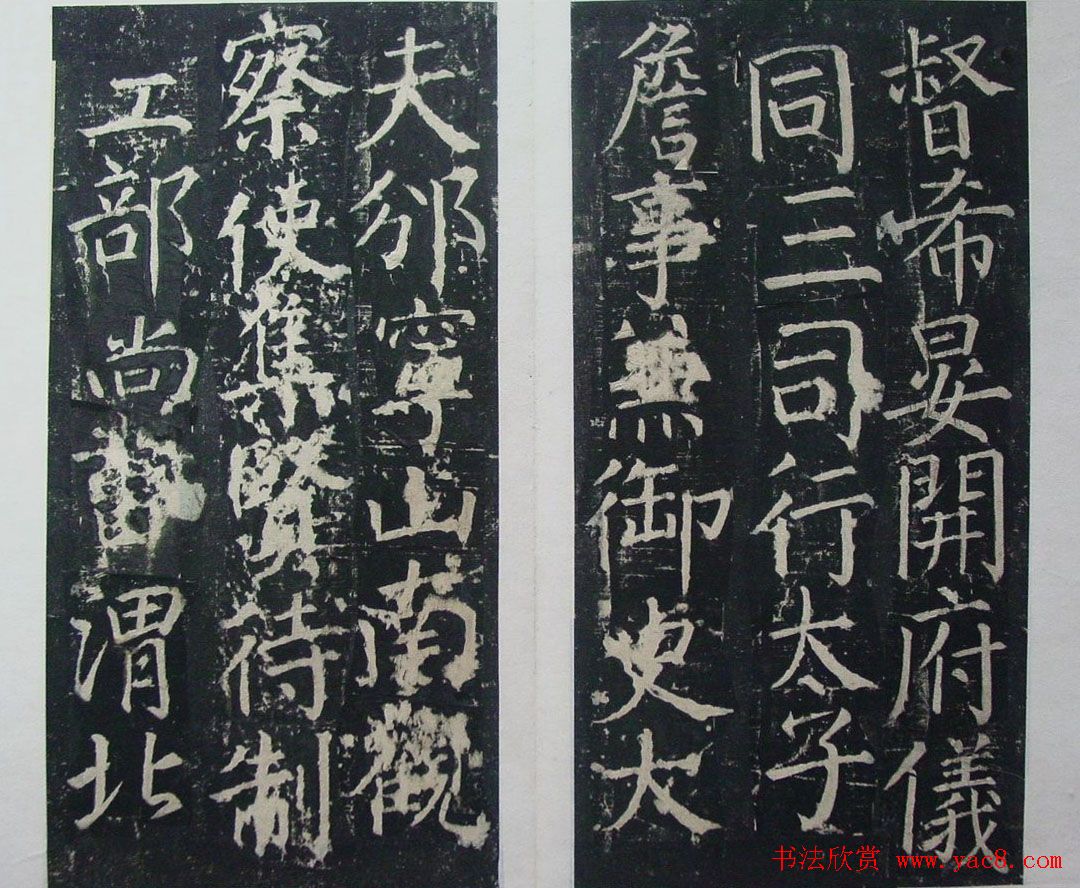 督希晏開府儀
同三司行太子
詹事兼御史大
夫邠寧山南觀
察使集賢待制
工部尚書渭北
书法欣赏 www.yac8.com